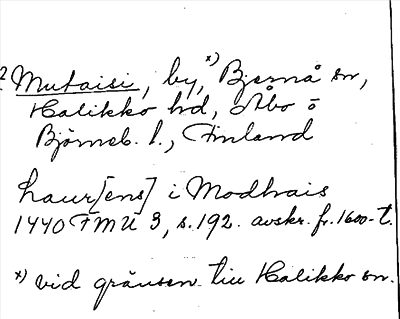 ? Mutaisi, by, *) Bjernå sn,
Halikko hd, Åbo o
Björneb. l., Finland
Laur[ens] i Modhais
1440 FMU 3, s. 192. avskr. fr. 1600-t.
*) vid gränsen till Halikko sn.